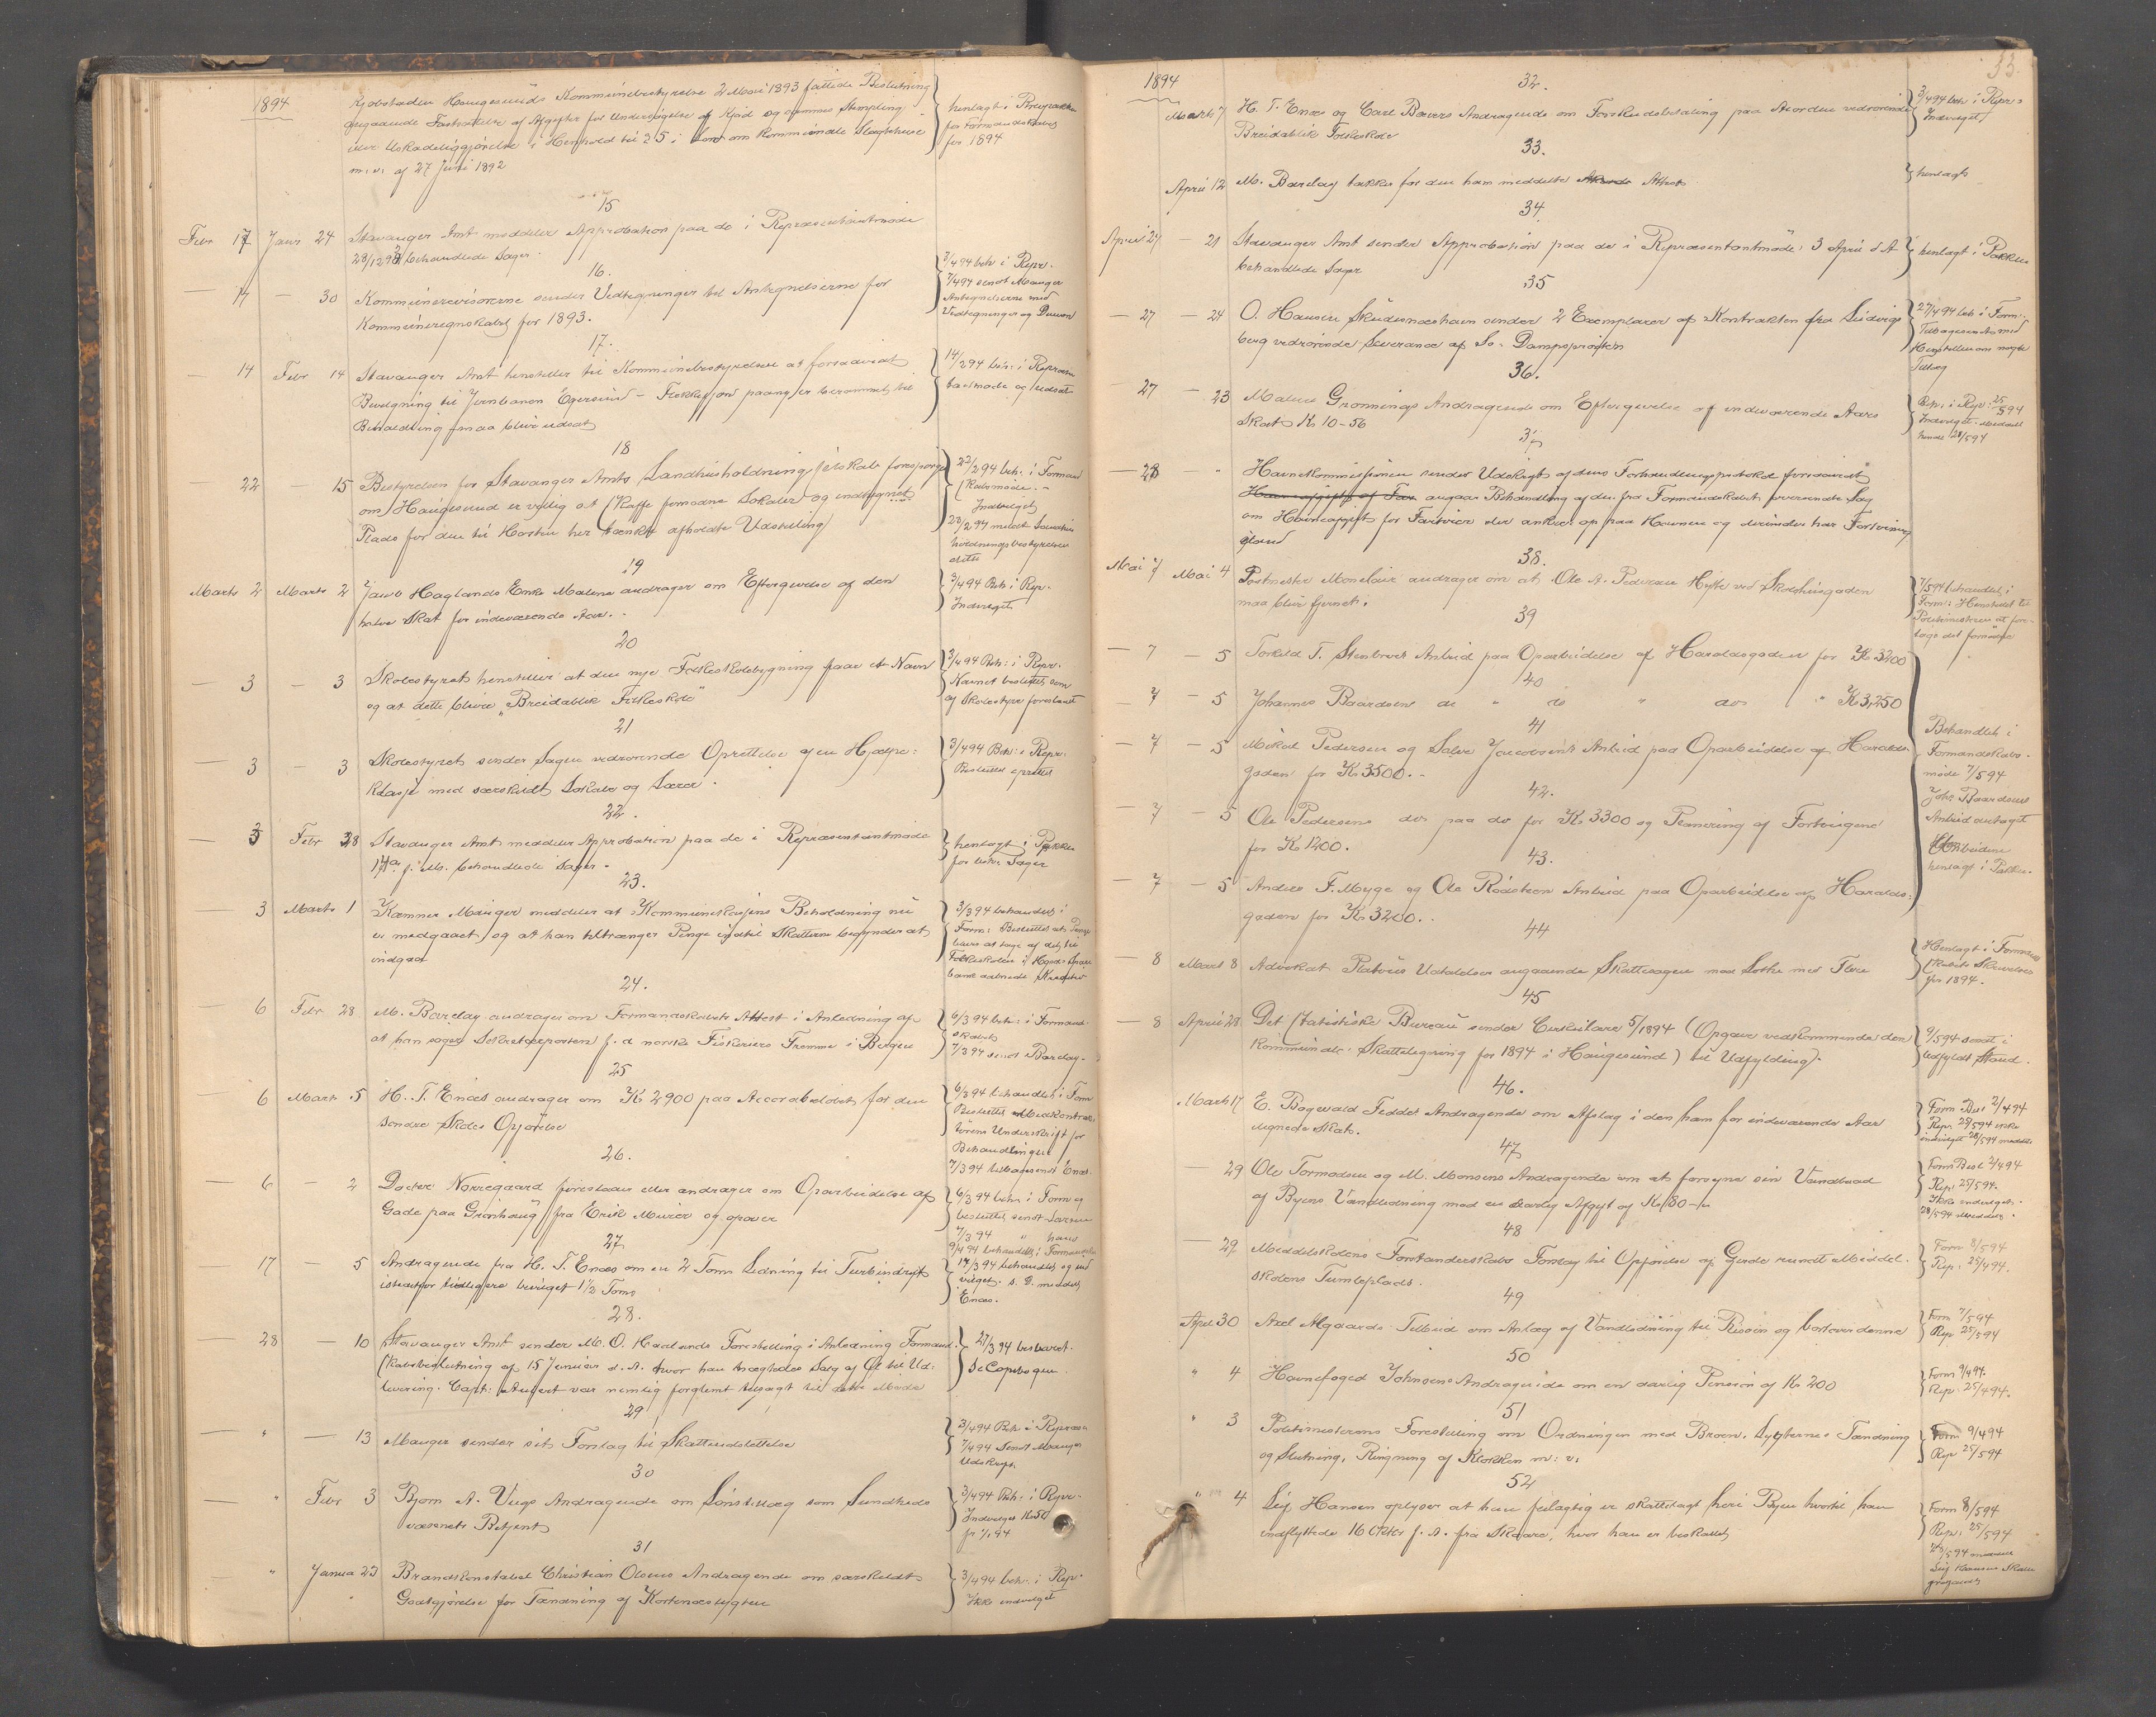 1894
Kjøbstaden Haugesunds Kommunebestyrelse 2 Mai 1893 fattede Beslutning
angaaende Fastsættelse af Afgifter for Undersøgelse af Kjød og sammes Stempling
eller Uskadeliggjørelse i Henhold til § 5 i Lov om kommunale Slagtehuse
m. v. af 27 Juni 1892
henlagt i
for Formandskabet
for 1894
15
Febr 17 Janr 24 Stavanger Amt meddeler Approbation paa de i Repræsentantmøde
28/12 93 behandlede Sager.
16.
— 14 — 30 Kommunerevisorerne sender Vedtegninger til Antegnelserne for
Kommuneregnskabet for 1893.
3/4 94 beh i Repr.
7/4 94 sendt Mauger
Antegnelserne med
Vedtegninger og
17.
— 14 Febr 14 Stavanger Amt henstiller til Kommunebestyrelsen at forsaavidt
Bevilgning til Jernbanen Egersund – Flekkefjord paany er berammet til
Behandling maa blive udsat
14/2 94 beh: i Repræsen
tantmøde og udsat
18
22 — 15 Bestyrelsen for Stavanger Amts Landhusholdningsselskab forespørger
om Haugesund er villig at skaffe fornødne Lokaler og indhegnet
Plads for den til Høsten her tænkt afholdte Udstilling
22/2 94 beh: i Formand
skabsmøde. -
Indvilget
23/2 94 meddt Landhus
holdningsbestyrelsen
dette
19
Marts 2 Marts 2 Jacob Haglands Enke Malene andrager om Eftergivelse af den
halve Skat for indeværende Aar. -
3/4 94 Beh: i Rep.
Indvilget
20
— 3 — 3 Skolestyret henstiller at den nye Folkeskolebygning faar et Navn
og at dette bliver „Breidablik Folkeskole"
3/4 94 Beh: i Repr.
Navnet besluttet som
af Skolestyre foreslaaet
21
— 3 — 3 Skolestyret sender Sagen vedrørende Oprettelse af en Hjælpe:
klasse med særskildt Lokale og Lærer.
3/4 94 Beh: i Repr.
Besluttet oprettet
22.
— 3 Febr 28 Stavanger Amt meddeler Approbation paa de i Repræsentantmøde
14de f. M. behandlede Sager -
henlagt i Pakken
for Sager
23.
3 Marts 1 Kæmner Mauger meddeler at Kommunekassens Beholdning nu
er medgaaet og at han tiltrænger Penge indtil Skatterne begynder at
indgaa
3/3 94 behandlet i
Form: Besluttet at Penge
24.
— 6 Febr 28 M. Barclay andrager om Formandskabets Attest i Anledning af
at han søger Sekretærposten f. d norske Fiskeriers Fremme i Bergen
6/3 94 beh: i Formand
skabet
7/3 94 sendt Barclay -
25
— 6 Marts 5 H. T. Enæs andrager om Kr 2900 paa Accordbeløbet for den
søndre Skoles Opførelse
6/3 94 behandlet i Form
Besluttet Medkontrak
törens Underskrift før
Behandlingen
7/3 94 tilbagesendt Enæs.
26.
— 6 — 2 Doctor Nørregaard foreslaar eller andrager om Oparbeidelse af
Gade paa Grønhaug fra Erik Murer og opover
6/3 94 beh: i Form og
besluttet sendt Larsen
7/3 94 " hans
27
17 — 5 Andragende fra H. T. Enæs om en 2 Toms Ledning til Turbindrift
istedetfor tidligere bevilget 1½ Toms
9/4 94 behandlet i Formandsk
17/3 94 behandlet og ind
vilget. s. D. meddelt
Enæs.
28.
— 28 — 10 Stavanger Amt sender M. O. Haalands Forestilling i Anledning Formand
skabsbeslutning af 15 Januar d. A. hvor han nægtedes Salg af Øl til Ud:
levering. Capt: var nemlig forglemt tilsagt til dette Møde
27/3 94 besvaret.
Se Copibogen
29
— " — 13 Mauger sender sit Forslag til Skatteudstettelse
3/4 94 Beh: i Repræs:
7/4 94 Sendt Mauger
Udskrift.
30
— " Febr 3 Bjørn A. Viigs Andragende om Lønstillæg som Sundheds
væsenets Betjent
3/4 94 Beh: i Repr.
Indvilget Kr 50
fr 1/1 94
31
" Januar 23 Brandkonstabel Christian Olsens Andragende om særskildt
Godtgjørelse for Tænding af Kortenæslygten
3/4 94 beh: i Rep:
Ikke indvilget
33.
1894
32.
Marts 7 H. T. Enæs og Carl Bævers Andragende om Forskudsbetaling paa Acorden vedrørende
Breidablik Folkeskole
3/4 94 beh: i Repr:
Indvilget
33.
April 12 M. Barclay takker for den ham meddelte Attest
henlagt
34.
April 27 — 21 Stavanger Amt sender Approbation paa de i Repræsentantmøde 3 April d A
behandlede Sager
henlagt i Pakken
35
— 27 — 24 O. Hansen Skudesnæshavn sender 2 Exemplarer af Kontrakten fra Ludvigs
berg vedrørende Leverance af Dampsprøiten
27/4 94 beh i Form:
Tilbagesendt med
Henstillen om nogle
Tillæg
36.
— 27 — 23 Malene Grønnings Andragende om Eftergivelse af indeværende Aars
Skat Kr 10-56
Beh: i Repr: 25/5 94
Indvilget. Meddelt
hende 28/5 94
37
— 28 — " Havnekommissionen sender Udskrift af dens Forhandlingsprotokol forsaavidt
angaar Behandling af den fra Formandskabet oversendte Sag
om Havneafgift for Fartøier der ankrer op paa Havnen og derunder har Fortøining
island
38.
Mai 7 Mai 4 Postmester Monclair andrager om at Ole A. Pedersens Hytte ved Skolehusgaden
maa blive fjernet.
7/5 94 behandlet i
Form: Henstillet til
Politimesteren at fore-
tage det fornødne
39
— 7 — 5 Torkild T. Stenbrots Anbud paa Oparbeidelse af Haraldsgaden for Kr 3200
40
— 7 — 5 Johannes Baardsens do " do " do " Kr 3,250
41
— 7 — 5 Mikal Pedersen og Salve Jacobsens Anbud paa Oparbeidelse af Haralds:
gaden for Kr 3500. -
42.
— 7 — 5 Ole Pedersens do paa do for Kr 3300 og Planering af Fortougene
for Kr 1200.
43.
— 7 — 5 Anders F. Myge og Ole Rödstøen Anbud paa Oparbeidelse af Haralds:
gaden for Kr 3200. -
Behandlet i
Formandskabs-
møde 7/5 94
Johs Baardsens
Anbud antaget
henlagt i Pakken
44
— 8 Marts 8 Advokat Platous Udtalelser angaaende Skattesagen mod Lothe med Flere
Henlagt i Formand
skabets Skrivelser
for 1894.
45
— 8 April 28 Det statistiske Bureau sender Cirkulære 5/1894 (Opgave vedkommende den
kommunale Skatteligning for 1894 i Haugesund) til Udfyldning.
9/5 94 sendt i
udfyldt Stand.
46.
Marts 17 E. Bogwald Feddes Andragende om Afslag i den ham for indeværende Aar
lignede Skat.
Form Besl 2/4 94
Repr 25/5 94 ikke
indvilget 28/5 94 meddelt
47
— 29 Ole Tormodsen og M. Monsens Andragende om at forsyne sin Vandbaad
af Byens Vandledning mod en aarlig Afgift af Kr 80-/-
Form Besl 2/4 94
Rep: 25/5 94.
Ikke indvilget.
28/5 94 Meddelt.
48
— 29 Middelskolens Forstanderskabs Forslag til Opførelse af Gjerde rundt Middel-
skolens Tumleplads.
Form 8/5 94
Rep: 25/4 94.
49
April 30 Axel Algaards Tilbud om Anlæg af Vandledning til Risöen og bortover denne
Form 7/5 94
Rep 25/5 94
50
" 4 Havnefoged Johnsens Andragende om en aarlig Pension af Kr 200
Form 9/4 94.
Rep: 25/4 94.
51
" 3 Politimesterens Forestilling om Ordningen med Broen. Lygternes Tænding
og Slutning, Ringning af Klokken m: v.
Form 9/4 94
Rep 25/5 94
52
" 4 Sig. Hansen oplyser at han feilagtig er skattelagt her i Byen hvortil han
indflyttede 16 Oktbr f. A. fra Skaare, hvor han er beskattet
Form 8/5 94
Rep: 25/5 94
28/5 94 meddelt
Sig Hansen Skatte